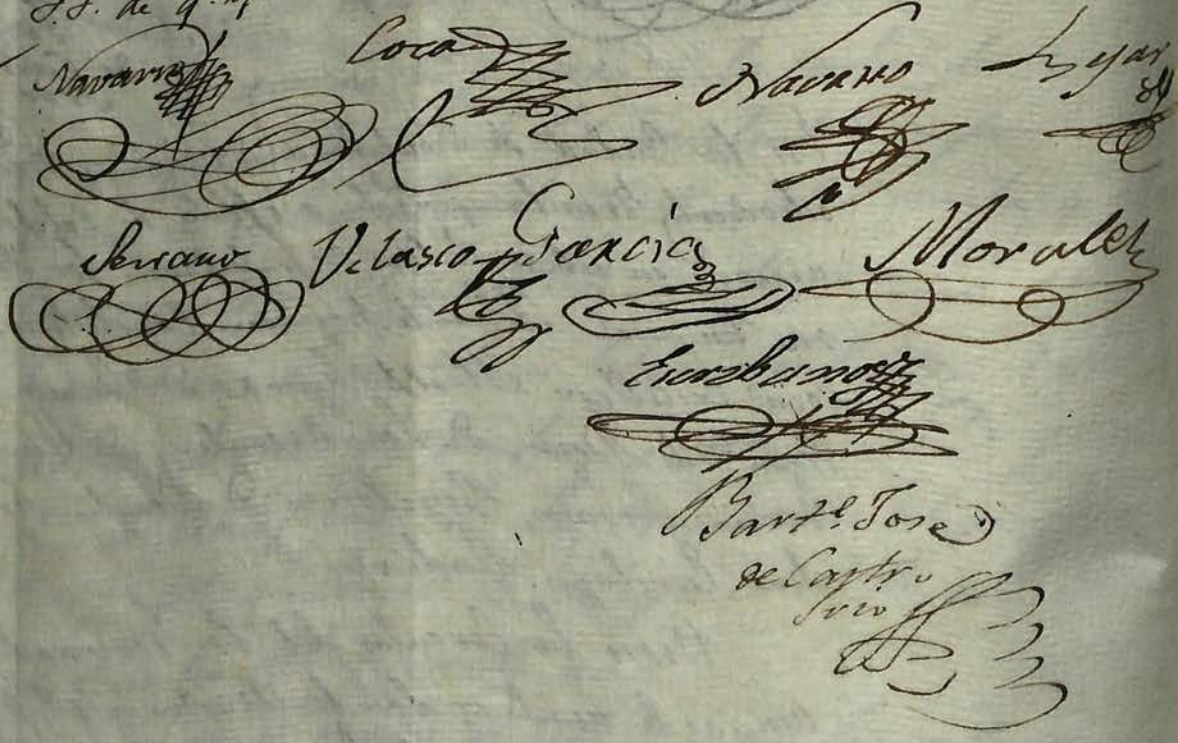 Navarro Coca Navarro
Serrano Velasco Garcia Morales
Bart.e Jose
de Castro
Srio